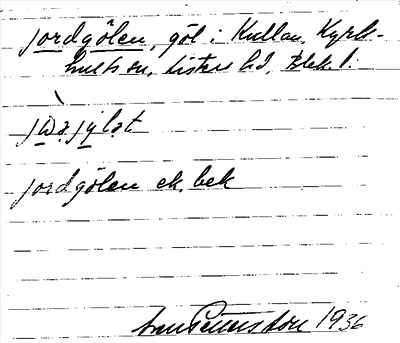 jordgölen, göl i Kullan, Kyrk-
hults sn, Listers hd, Blek l.
jordgölen ek. bek
1936